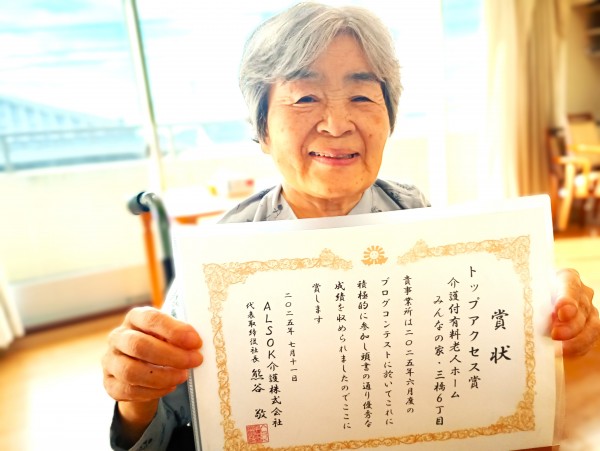 賞状
トップアクセス賞
介護付有料老人ホーム
みんなの家・三橋6丁目
貴事業所は二〇二五年六月度の
ブログコンテストに於いてこれに
積極的に参加し頭書の通り優秀な
成績を収められましたのでここに
賞します
二〇二五年 七月十一日
ALSOK介護株式会社
代表取締役社長 熊谷 敬